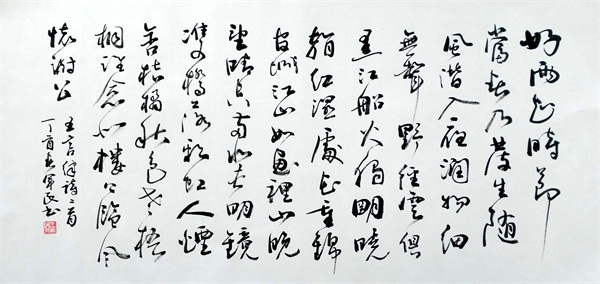 好雨知時節
當春乃發生隨
風潛入夜潤物细
無聲野径雲俱
黑江船火獨明曉
看红濕處花重錦
官城江如画裡山晚
望晴空两水夹明鏡
雙橋落彩虹人煙
寒秋色老梧
桐谁念北樓上臨風
懷謝公
五言律詩二首
丁酉春軍民書